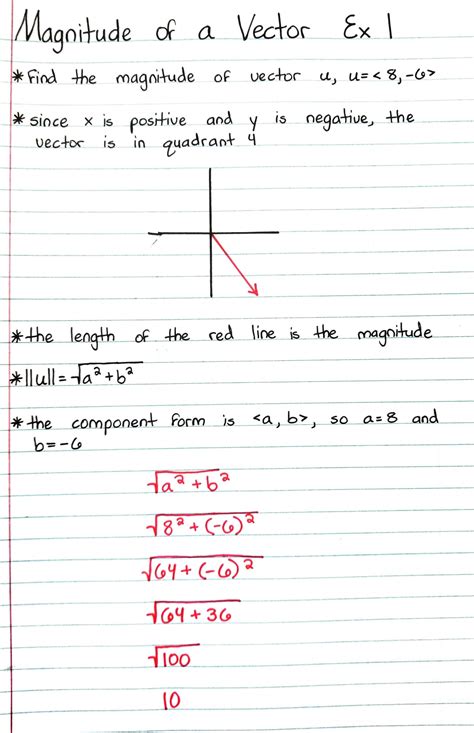 Magnitude of a Vector Ex 1
* Find the magnitude of vector u, u=<8,-6>
* since x is positive and y is negative, the
vector is in quadrant 4
* the length of the red line is the magnitude
* ||u||=√a²+b²
* the component form is <a, b>, so a=8 and
b=-6
√a²+b²
√8²+(-6)²
√64+(-6)²
√64+36
√100
10